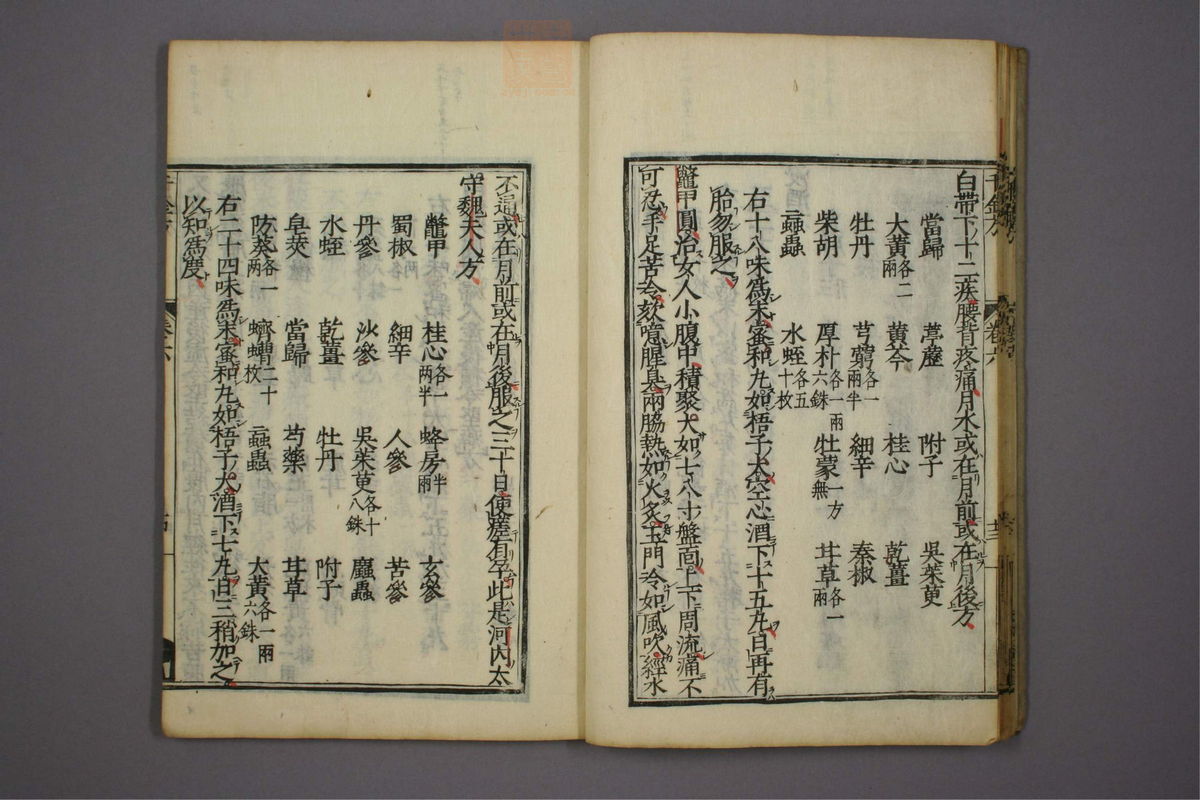 白帶下十二疾腰背疼痛月水或在月前或在月後方
當歸 葶藶 附子 吳茱萸
大黃各二兩 黃芩 桂心 乾薑
牡丹 芎藭各一兩半 細辛 秦椒
柴胡 厚朴各一兩六銖 牡蒙一方無 甘草各一兩
蝱蟲 水蛭各五十枚
右十八味爲末蜜和丸如梧子大空心酒下十五丸日再有
胎勿服之
鱉甲圓治女人小腹中積聚大如七八寸盤面上下周流痛不
可忍手足苦冷欬噫腥臭兩脇熱如火炙玉門冷如風吹經水
卷六
不通或在月前或在月後服之三十日便瘥有孕此是河內太
守魏夫人方
鱉甲 桂心各一兩半 蜂房半兩 玄參
蜀椒各一兩 細辛 人參 苦參
丹參 沙參 吳茱萸各十八銖 䗪蟲
水蛭 乾薑 牡丹 附子
皂莢 當歸 芍藥 甘草
防葵各一兩 蠐螬二十枚 蝱蟲 大黃各一兩六銖
右二十四味爲末蜜和丸如梧子大酒下七丸日三稍加之
以知爲度